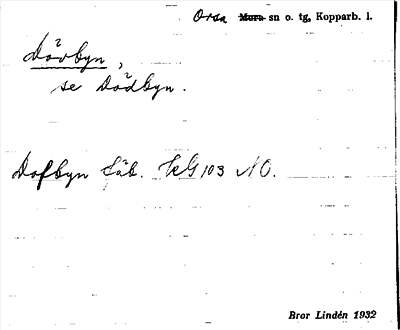 Orsa Mora sn o. tg, Kopparb. l.
Dövbyn,
se Dödbyn.
Dofbyn Säb. KG 103 NO.
Bror Lindén 1932